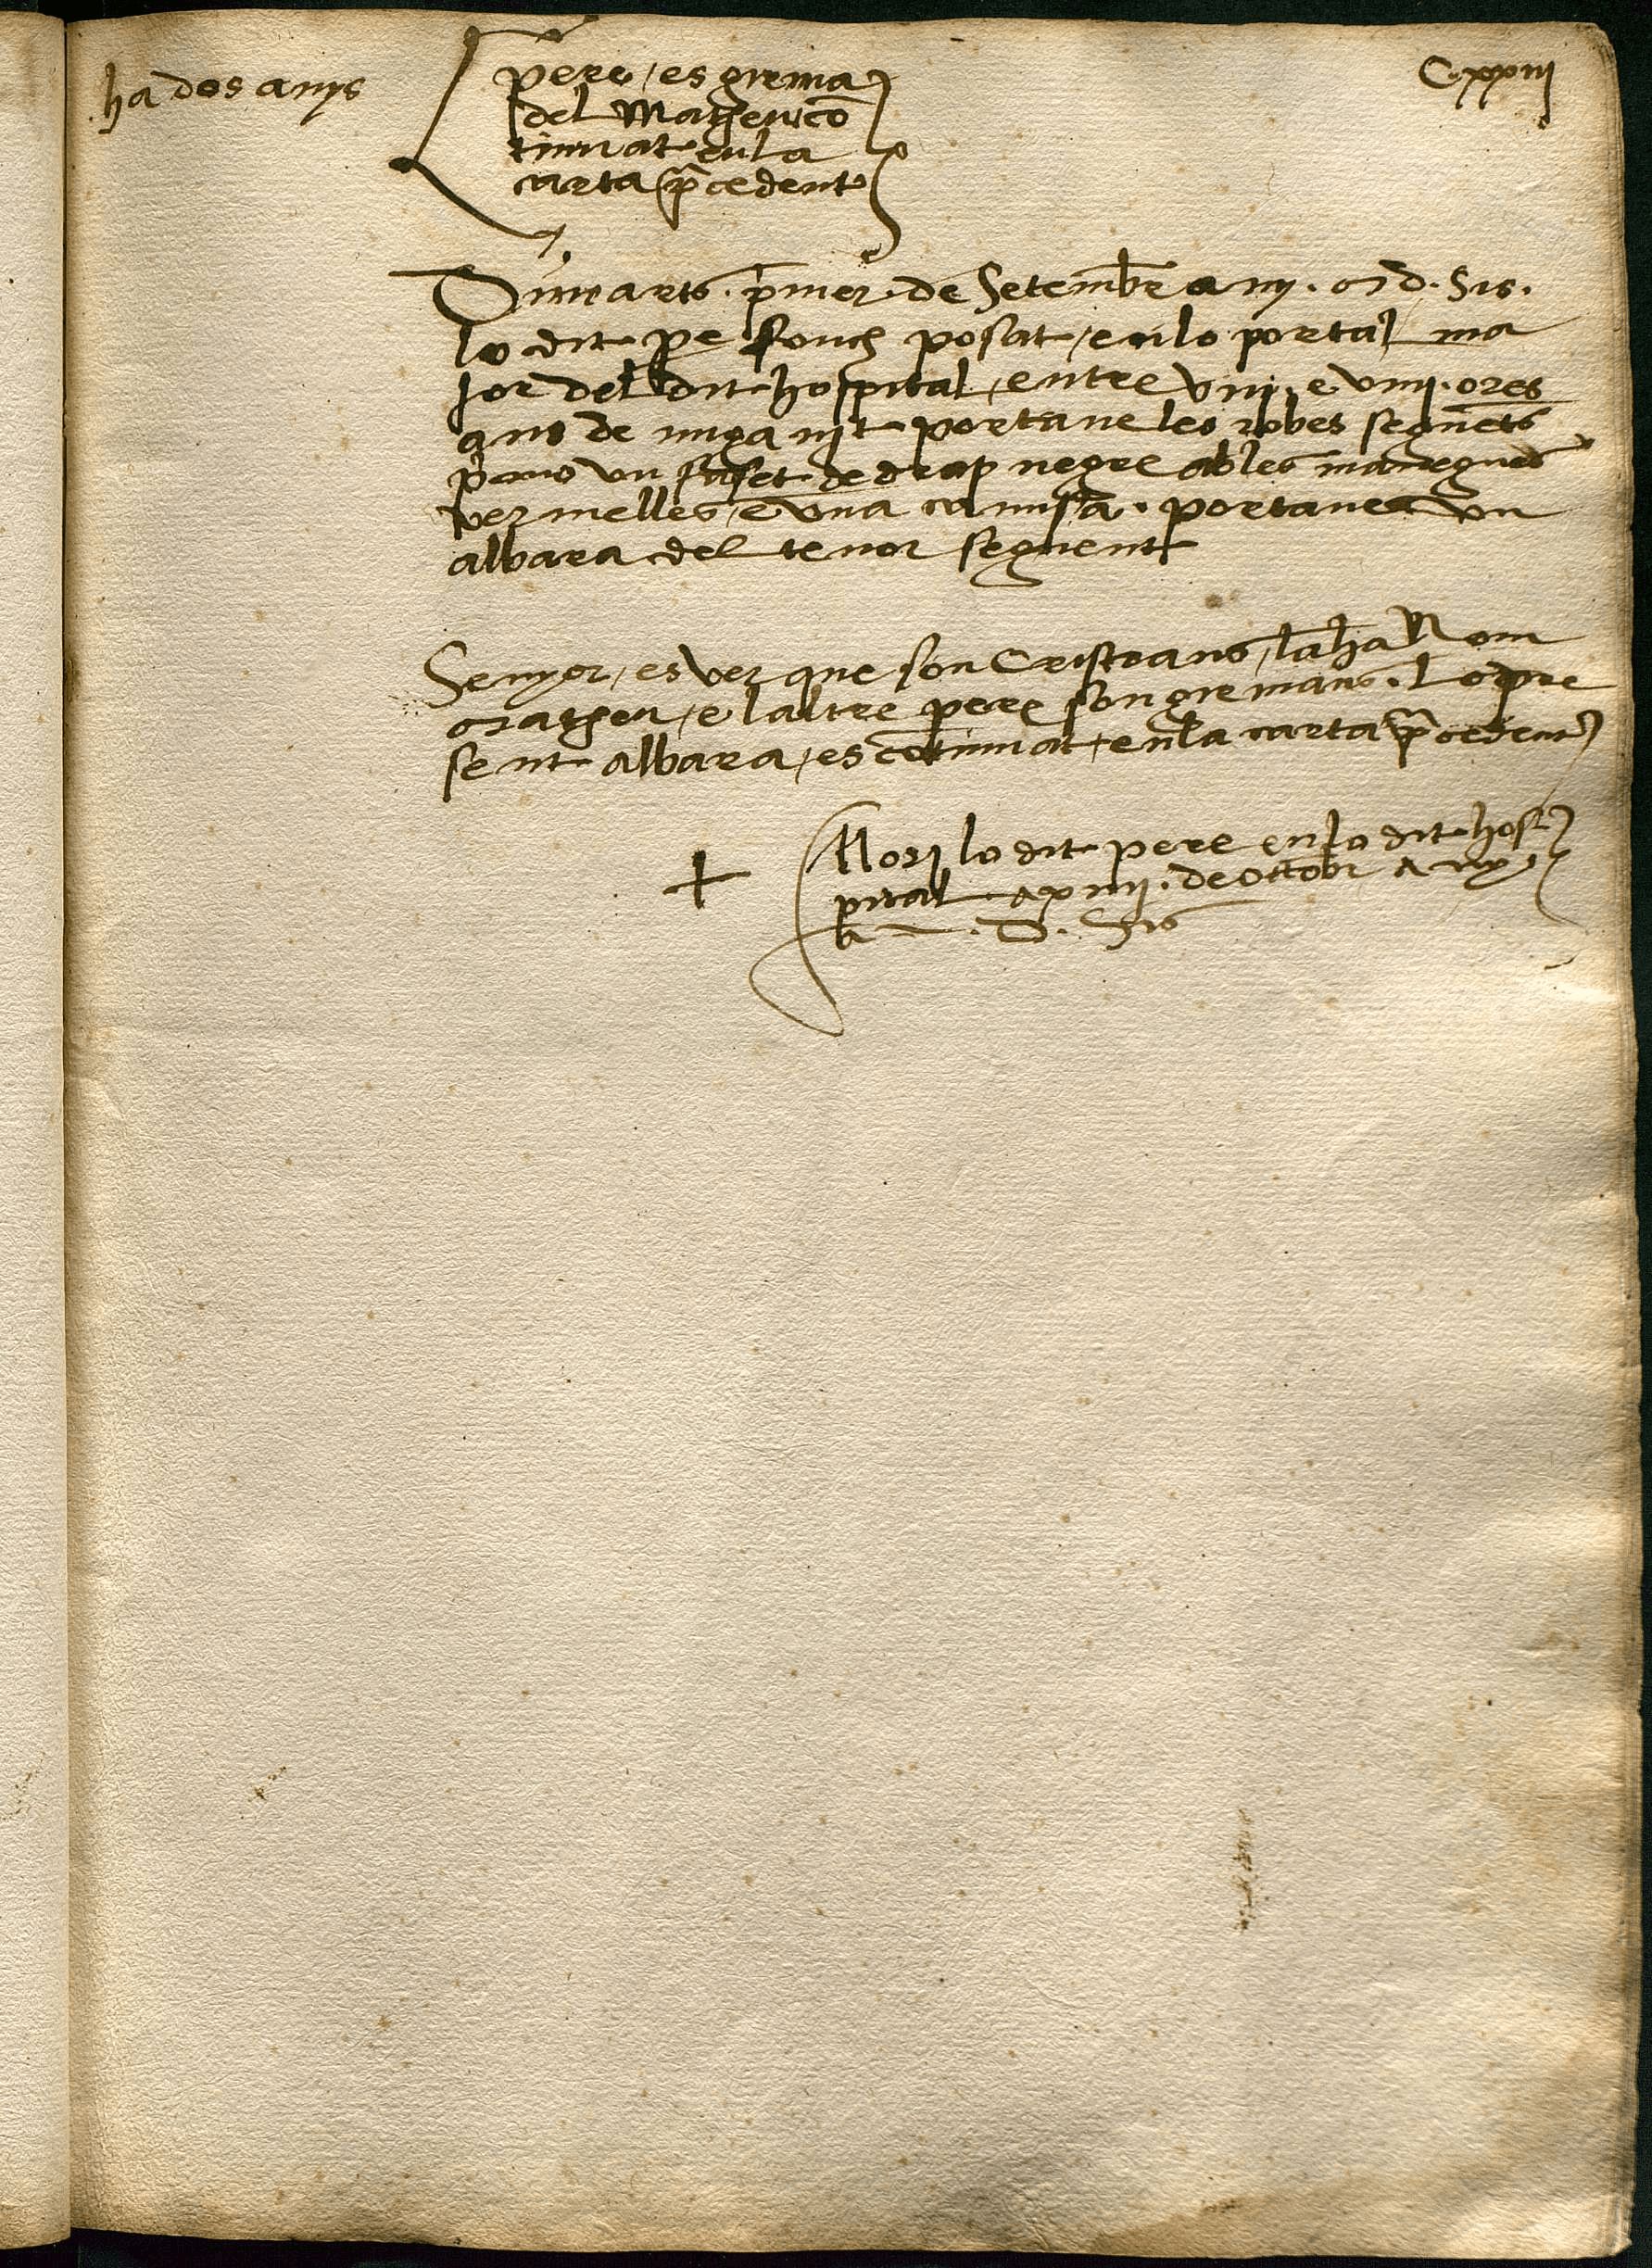 C.xxiij
ha dos anys
pere / es grema
del Matheu cō
tinuat en la
carta p̄cedent
Dimarts . p̄mer . de Setembr̄ any . M d . Sis .
lo dit pe fonch posat / en lo portal ma
jor del dit hospital / entre viij . e viiij . ores
ans de miga nit portaue les robes seguēts
p̄mo vn saset de drap negre ab les manegues
vermelles / e vna camisa . portaue vn
albara del tenor seguent
Senyor / es ver que son Cristians / la ha Nom
Matheu / e laltre pere son gremans . Lo pre
sent albara / es cōtinuat / en la carta p̄cedent
Mori lo dit pere en lo dit hos
pital a xiiij . de Octobr̄ any
. D . Sis